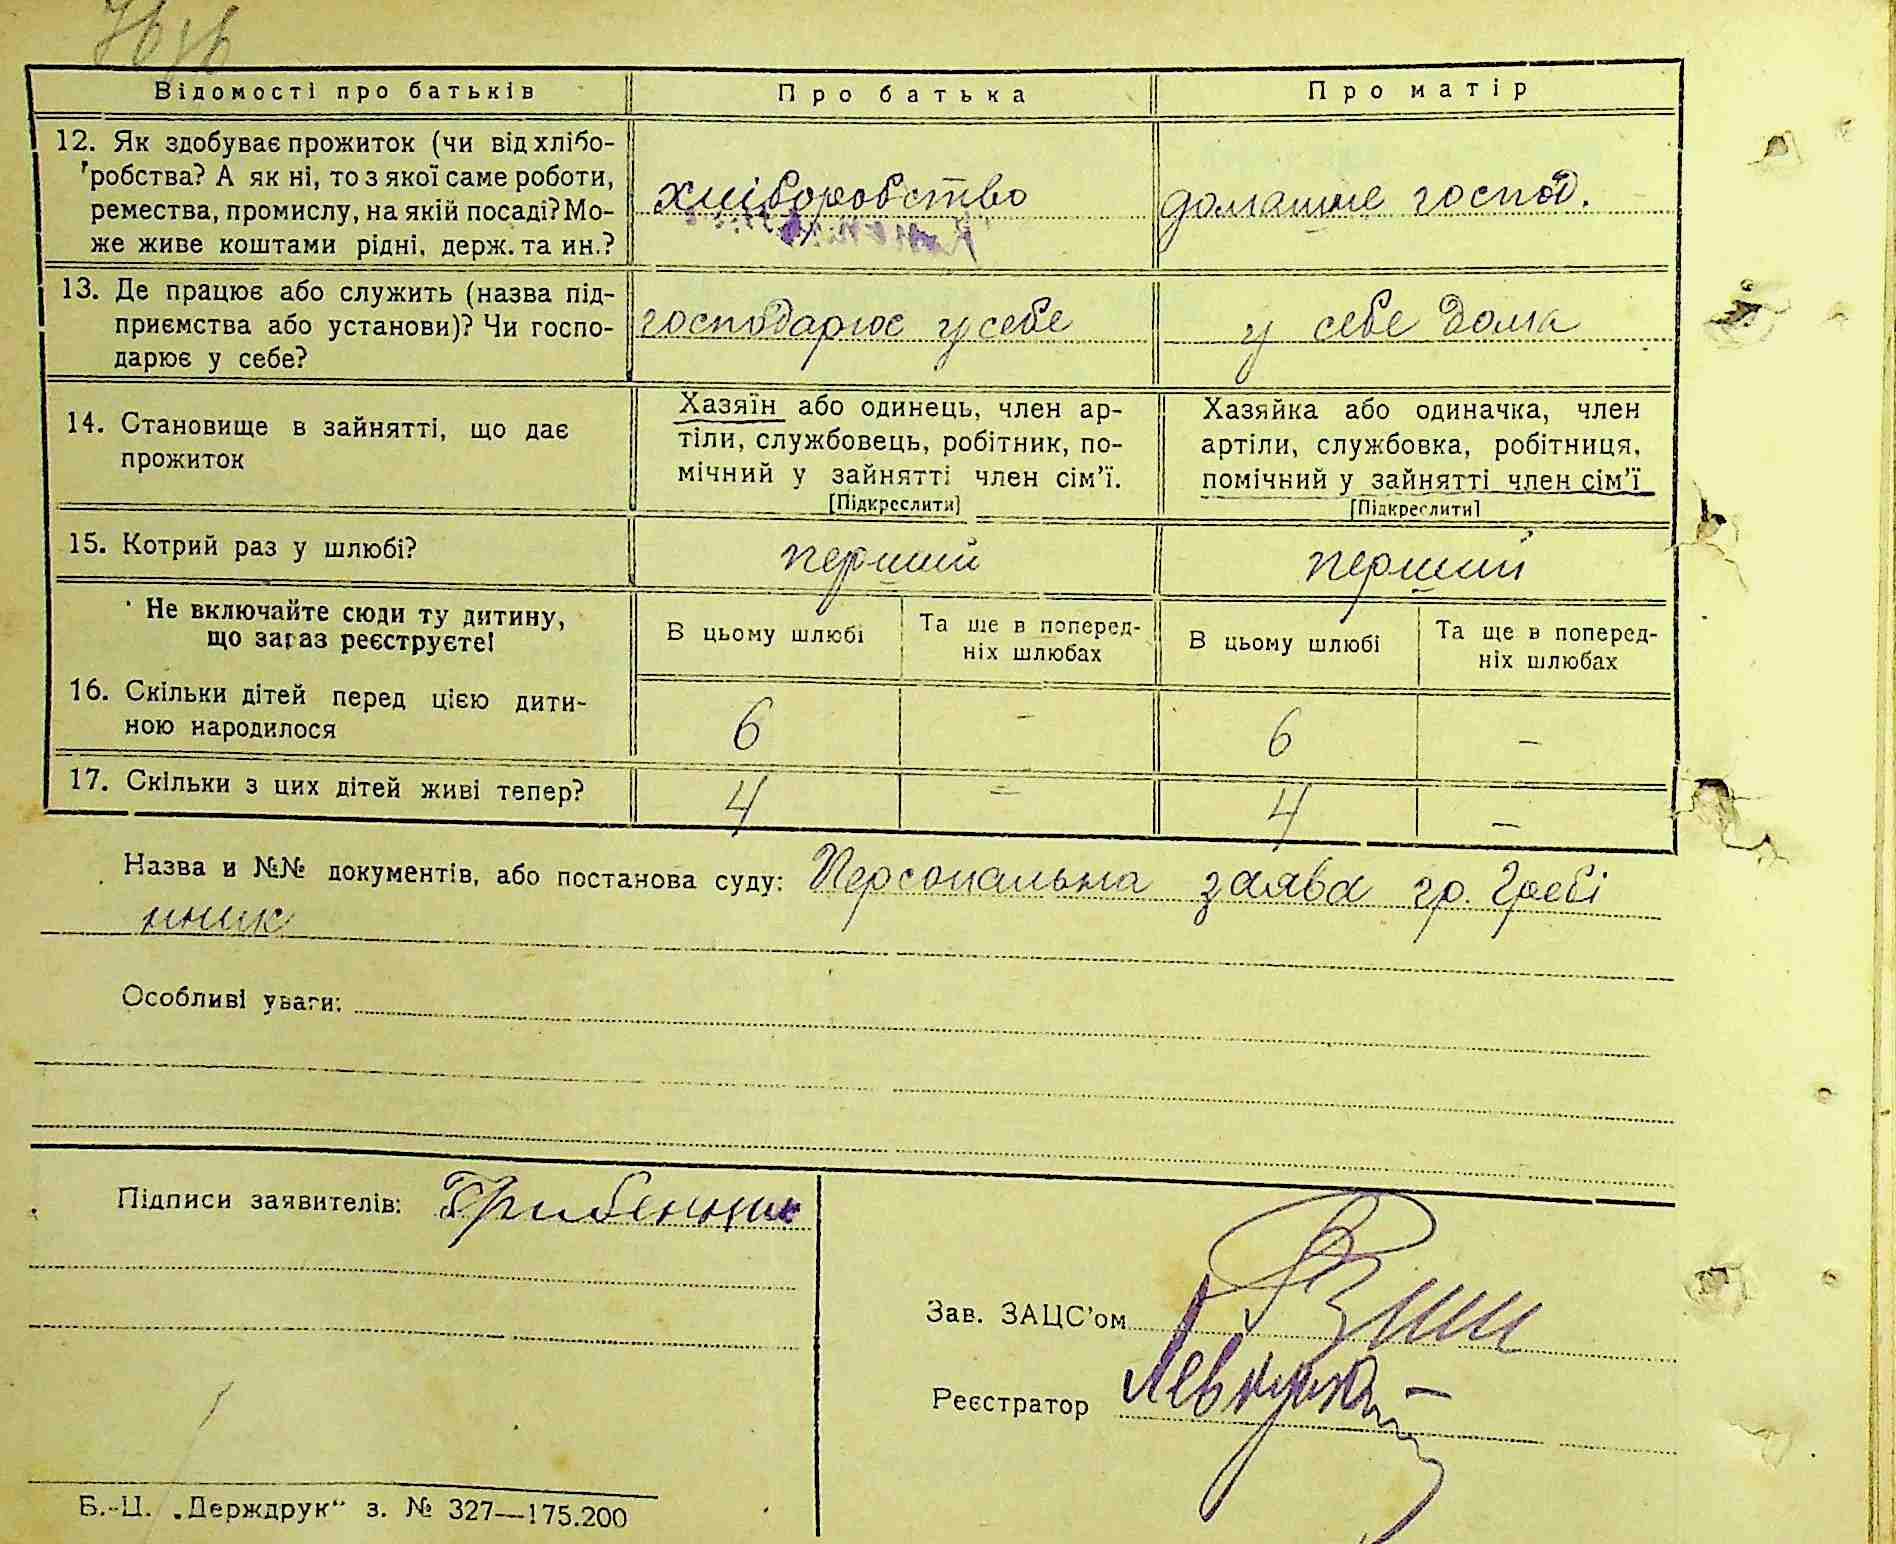 Відомості про батьків
Про батька
Про матір
12. Як здобуває прожиток (чи від хлібо-
робства? А як ні, то з якої саме роботи,
ремества, промислу, на якій посаді? Мо-
же живе коштами рідні, держ. та ин.?
хліборобство
домашнє господ.
13. Де працює або служить (назва під-
приємства або установи)? Чи госпо-
дарює у себе?
господарює у себе
у себе дома
14. Становище в зайнятті, що дає
прожиток
Хазяїн або одинець, член ар-
тіли, службовець, робітник, по-
мічний у зайнятті член сім'ї.
[Підкреслити]
Хазяйка або одиначка, член
артіли, службовка, робітниця,
помічний у зайнятті член сім'ї
[Підкреслити]
15. Котрий раз у шлюбі?
перший
перший
Не включайте сюди ту дитину,
що зараз реєструєте!
В цьому шлюбі
Та ще в поперед-
ніх шлюбах
В цьому шлюбі
Та ще в поперед-
ніх шлюбах
16. Скільки дітей перед цією дити-
ною народилося
6
-
6
-
17. Скільки з цих дітей живі тепер?
4
-
4
-
Назва и №№ документів, або постанова суду: Персональна заява гр. Гребі
нник
Особливі уваги:
Підписи заявителів: Грибенник
Зав. ЗАЦС'ом
Реєстратор
Б.-Ц. „Держдрук" з. № 327—175.200